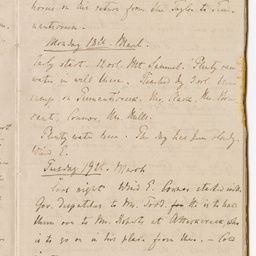 horses on the return from the Taylor to Ten-
nant's creek.
Monday 18th March.
Early start. Level Mt Samuel. Plenty rain
water in well there. Reached by 2 o'c
camp on Tennant's creek. Mr.
Connor, Mr. Mills.
Plenty water here. The day has been cloudy.
Wind E.
Tuesday 19th March
Last night Wind E. Connor started with
Gov. dispatches to Mr. Todd. He is to hand
them over to Mr. Roberts at Attack creek, who
is to go on in his place from there. - Cold